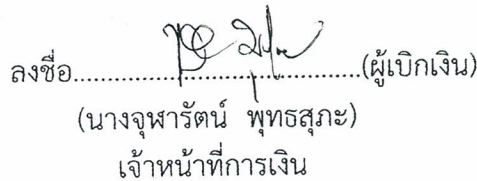 ลงชื่อ....................................(ผู้เบิกเงิน)
(นางจุฬารัตน์ พุทธสุภะ)
เจ้าหน้าที่การเงิน